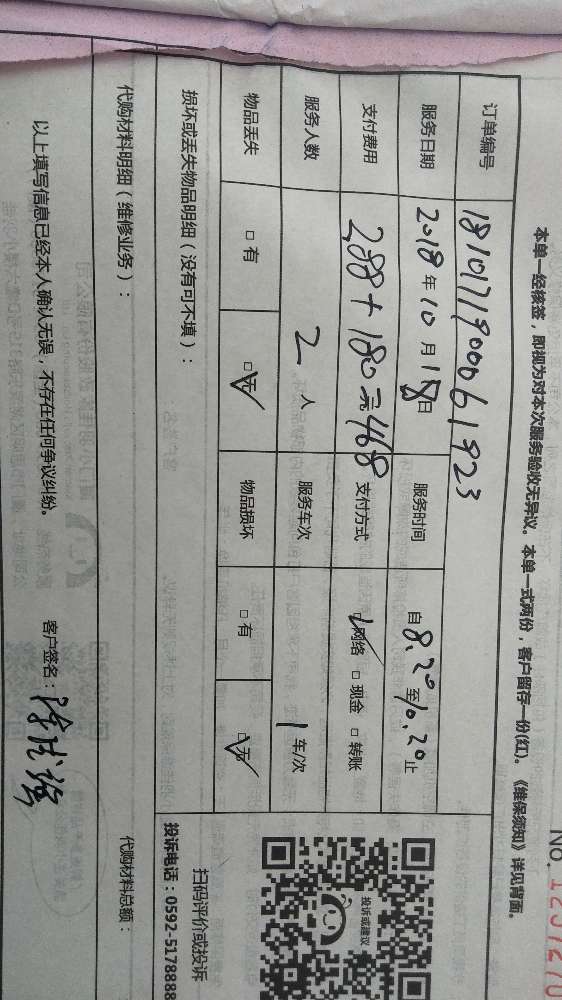 No.
本单一经核签，即视为对本次服务验收无异议。本单一式两份，客户留存一份(红)。《维保须知》详见背面。
订单编号 1810171900061923
服务日期 2018年10月18日 服务时间 自8.20至10.20止
支付费用 288+180元468 支付方式 ☑网络 □现金 □转账
服务人数 2人 服务车次 1车/次
物品丢失 □有 ☑无 物品损坏 □有 ☑无
损坏或丢失物品明细（没有可不填）：
代购材料明细（维修业务）： 代购材料总额：
投诉或建议
扫码评价或投诉
投诉电话：0592-5178888
以上填写信息已经本人确认无误，不存在任何争议纠纷。 客户签名：